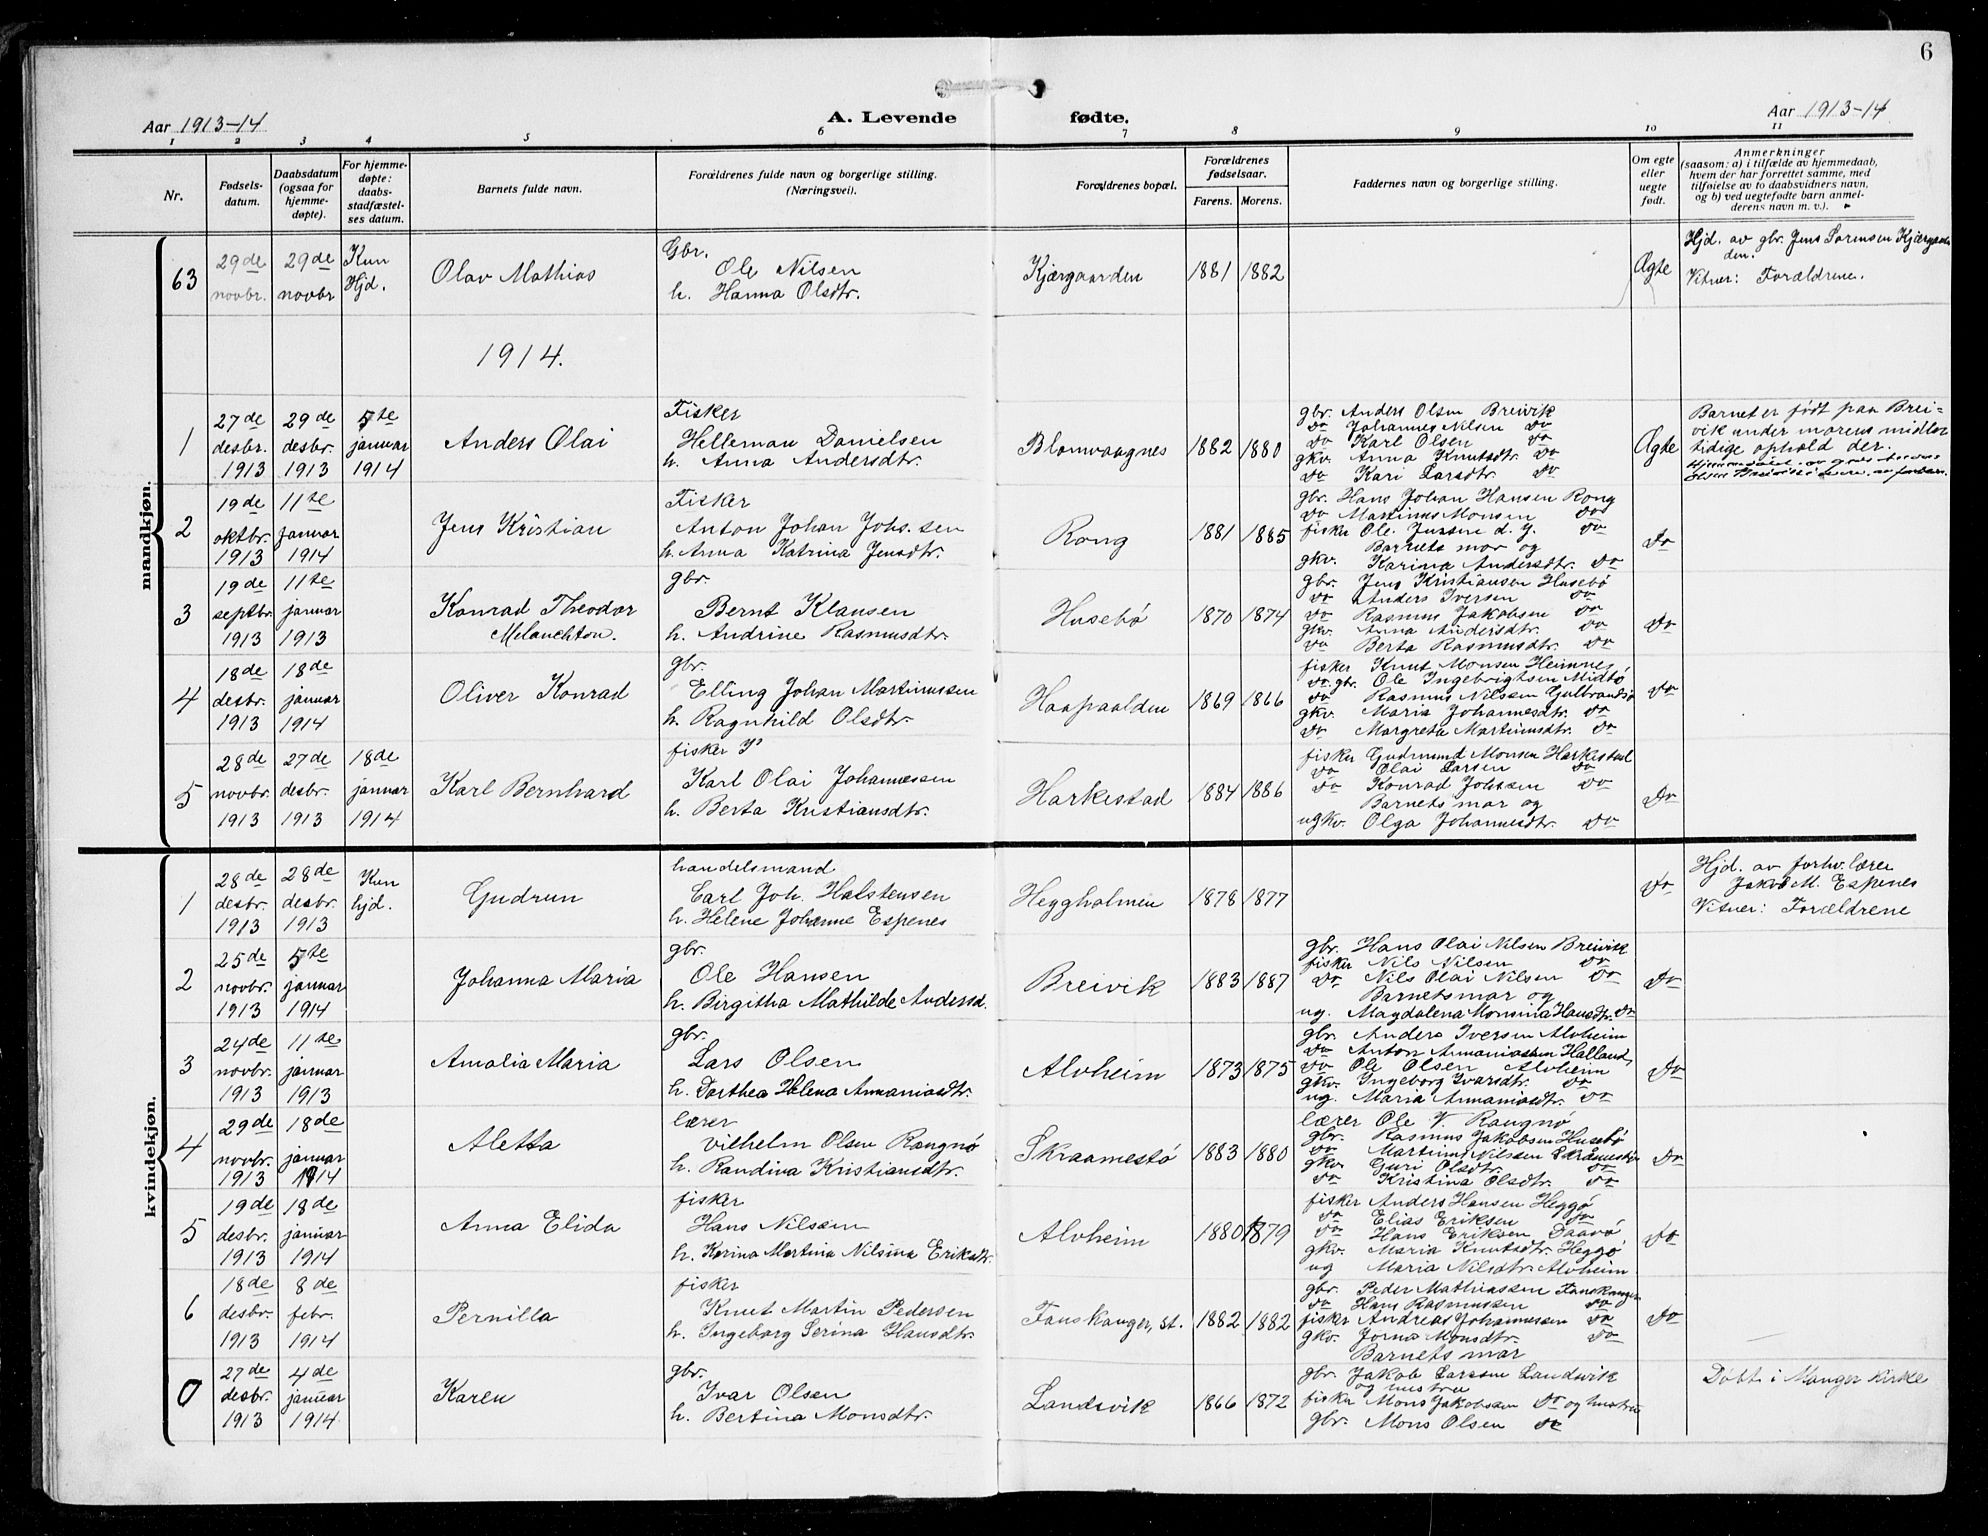 6
Aar 1913-14
A. Levende fødte.
Aar 1913-14
1 2 3 4 5 6 7 8 9 10 11
Nr.
Fødsels-
datum.
Daabsdatum
(ogsaa for
hjemme-
døpte).
For hjemme-
døpte:
daabs-
stadfæstel-
ses datum.
Barnets fulde navn.
Forældrenes fulde navn og borgerlige stilling.
(Næringsvei).
Forældrenes bopæl.
Forældrenes
fødselsaar.
Farens. Morens.
Faddernes navn og borgerlige stilling.
Om egte
eller
uegte
født.
Anmerkninger
(saasom: a) i tilfælde av hjemmedaab,
hvem der har forrettet samme, med
tilføielse av to daabsvidners navn,
og b) ved uegtefødte barn anmel-
derens navn m. v.).
mandkjøn.
63
29de
novbr.
29de
novbr
Kun
Hjd.
Olav Mathias
Gbr.
Ole Nilsen
h. Hanna Olsdtr.
Kjærgaarden
1881 1882
Ægte
Hjd. av gbr. Jens Sørensen Kjærgaar
den.
Vitner: Forældrene.
1914.
1
27de
desbr.
1913
29de
desbr.
1913
5te
januar
1914
Anders Olai
Fisker
Helleman Danielsen
h. Anna Andersdtr.
Blomvaagnes
1882 1880
gbr. Anders Olsen Breivik
do Johannes Nilsen do
do Karl Olsen do
gkv. Anna Knutsdtr. do
do Kari Larsdtr. do
Ægte
Barnet er født paa Brei=
vik under morens midler
tidige ophold der.
2
19de
oktbr.
1913
11te
januar
1914
Jens Kristian
Fisker
Anton Johan Johs.sen
h. Anna Katrina Jensdtr.
Rong
1881 1885
gbr. Hans Johan Hansen Rong
do Martinus Monsen do
fisker Ole Jensen d. y. do
Barnets mor og
gkv. Karina Andersdtr. do
do
3
19de
septbr.
1913
11te
januar
1913
Konrad Theodor
Melanchton.
gbr.
Bernt Klausen
h. Andrine Rasmusdtr.
Husebø
1870 1874
gbr. Jens Kristiansen Husebø
do Anders Iversen do
do Rasmus Jakobsen do
gkv. Anna Andersdtr. do
do Berta Rasmusdtr. do
do
4
18de
desbr.
1913
18de
januar
1914
Oliver Konrad
gbr.
Elling Johan Martinussen
h. Ragnhild Olsdtr.
Haapaalden
1869 1866
fisker Knut Monsen Heimnes
do. gbr. Ole Ingebrigtsen Midtø
do Rasmus Nilssen Gulbrandsø
gkv. Maria Johannesdtr. do
do Margreta Martinusdtr. do
do
5
28de
novbr.
1913
27de
desbr.
1913
18de
januar
1914
Karl Bernhard
fisker
Karl Olai Johannessen
h. Berta Kristiansdtr.
Harkestad
1884 1886
fisker Gudmund Monsen Harkestad
do Olai Larsen do
do Konrad Johssen do
Barnets mor og
ugkv. Olga Johannesdtr. do
do
kvindekjøn.
1
28de
desbr.
1913
28de
desbr.
1913
Kun
hjd.
Gudrun
handelsmand
Carl Joh. Halstensen
h. Helene Johanne Espenes
Heggholmen
1878 1877
do
Hjd. av forhv. lærer
Jakob M. Espenes
Vitner: Forældrene
2
25de
novbr.
1913
5te
januar
1914
Johanna Maria
gbr.
Ole Hansen
h. Birgitha Mathilde Andersd.
Breivik
1883 1887
gbr. Hans Olai Nilsen Breivik
fisker Nils Nilsen do
do Nils Olai Nilsen do
Barnets mor og
ug. Magdalena Monsina Hansdtr. do
do
3
24de
novbr.
1913
11te
januar
1913
Amalia Maria
gbr.
Lars Olsen
h. Dorthea Helena Annaniasdtr.
Alvheim
1873 1875
gbr. Anders Iversen Alvheim
do Anton Annaniassen Halland
do Ole Olsen Alvheim
gkv. Ingeborg Ivarsdtr. do
ug. Maria Annaniasdtr. do
do
4
29de
novbr.
1913
18de
januar
1914
Aletta
lærer
Vilhelm Olsen Rongnø
h. Randina Kristiansdtr.
Skraamestø
1883 1880
lærer Ole V. Rongnø
gbr. Rasmus Jakobsen Husebø
do Martinus Nilssen Skramestø
gkv. Guri Olsdtr. do
do Kristina Olsdtr. do
do
5
19de
desbr.
1913
18de
januar
1914
Anna Elida
fisker
Hans Nilsen
h. Karina Martina Nilsina Eriksdtr.
Alvheim
1880 1879
fisker Anders Hansen Heggø
do Elias Eriksen do
do Hans Eriksen Daavø
gkv. Maria Knutsdtr. Heggø
ug Maria Nilsdtr. Alvheim
do
6
18de
desbr.
1913
8de
febr.
1914
Pernilla
fisker
Knut Martin Pedersen
h. Ingeborg Serina Hansdtr.
Fanskanger, st.
1882 1882
gbr. Peder Mathiassen Fanskanger
do Hans Rasmussen do
fisker Andreas Johannessen do
gkv. Jorna Monsdtr. do
Barnets mor
do
0
27de
desbr.
1913
4de
januar
1914
Karen
gbr.
Ivar Olsen
h. Bertina Monsdtr.
Landsvik
1866 1872
gbr. Jakob Larsen Landsvik
og hustru
fisker Mons Jakobsen do og hustru
gbr. Mons Olsen do
Døbt i Manger kirke